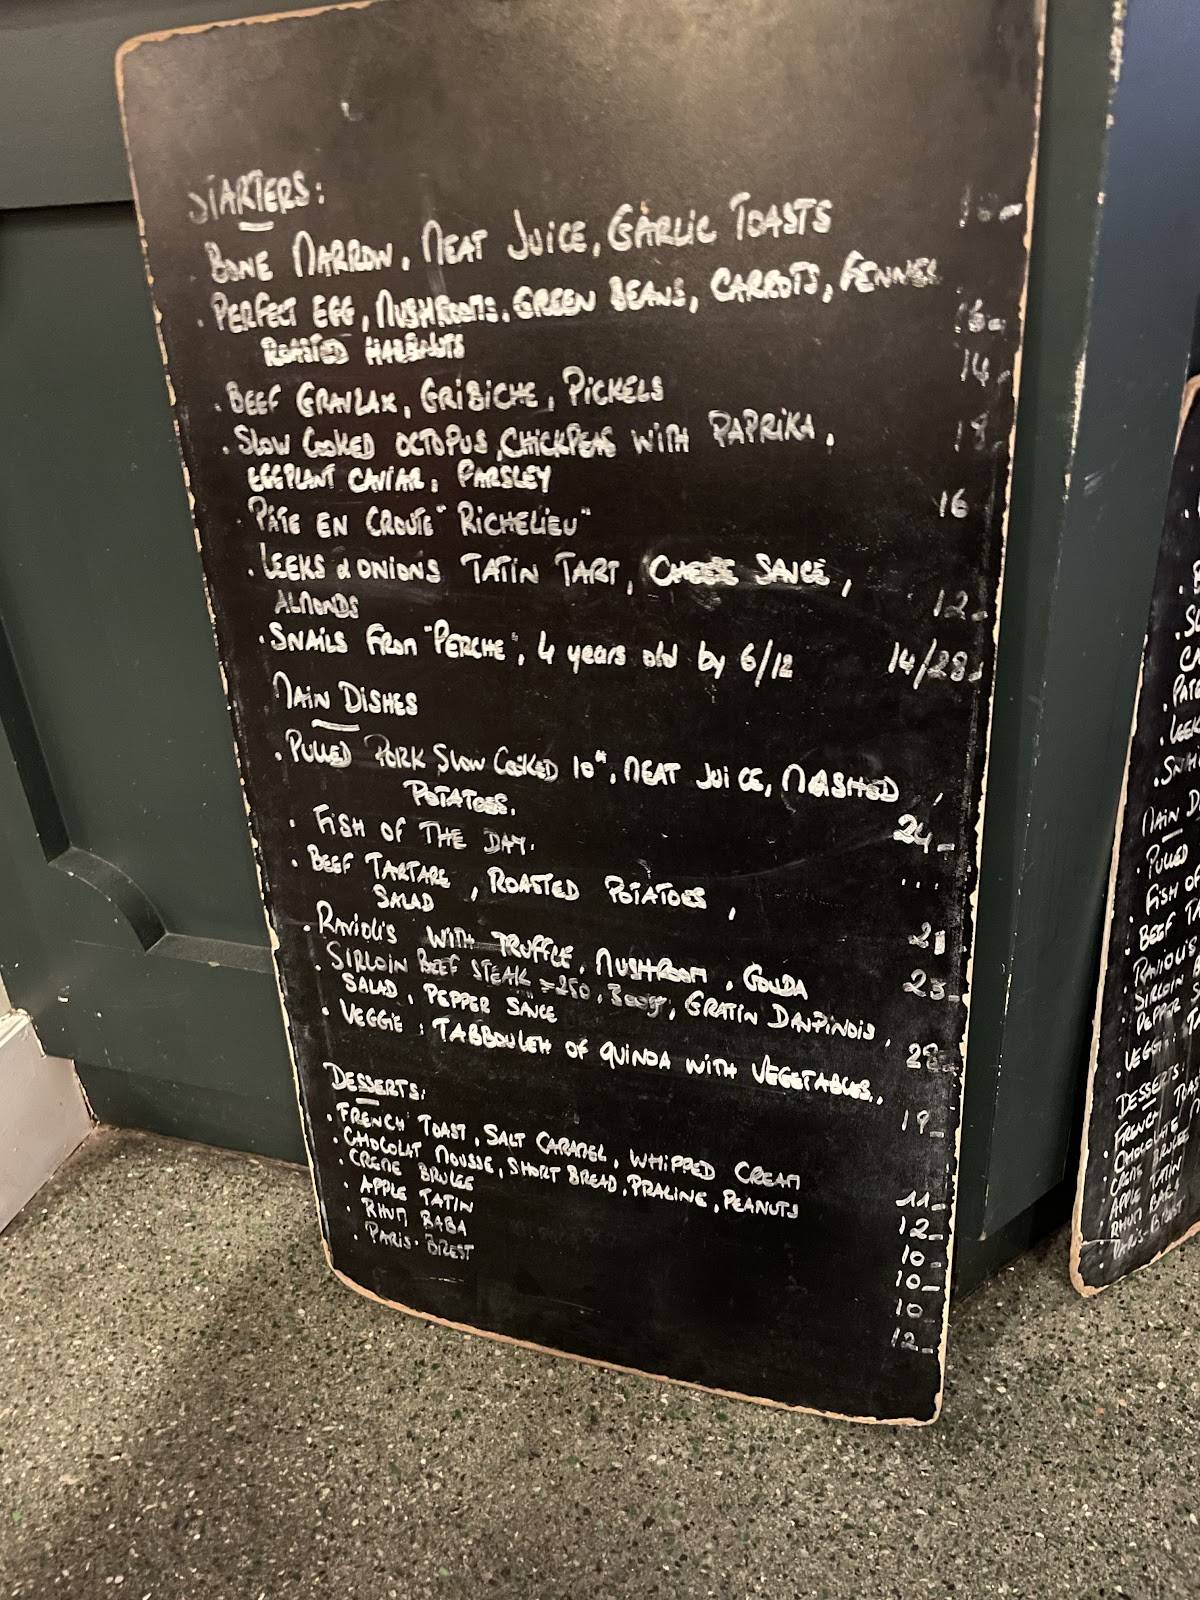 STARTERS:
. BONE MARROW, MEAT JUICE, GARLIC TOASTS
. PERFECT EGG, MUSHROOMS, GREEN BEANS, CARROTS, FENNEL
ROASTED 16-
. BEEF GRAVLAX, GRIBICHE, PICKELS 14-
. SLOW COOKED OCTOPUS, CHICKPEAS WITH PAPRIKA, 18-
EGGPLANT CAVIAR, PARSLEY
. PÂTE EN CROUTE "RICHELIEU" 16
. LEEKS & ONIONS TATIN TART, CHEESE SAUCE,
ALMONDS 12-
. SNAILS FROM "PERCHE", 4 years old by 6/12 14/28-
MAIN DISHES
. PULLED PORK SLOW COOKED 10H, MEAT JUICE, MASHED,
POTATOES. 24-
. FISH OF THE DAY. ...
. BEEF TARTARE, ROASTED POTATOES,
SALAD
. RAVIOLIS WITH TRUFFLE, MUSHROOM, GOUDA
. SIRLOIN BEEF STEAK GRATIN DAUPINOIS,
SALAD, PEPPER SAUCE 28-
. VEGGIE: TABBOULEH OF QUINOA WITH VEGETABLES.. 19-
DESSERTS:
. FRENCH TOAST, SALT CARAMEL, WHIPPED CREAM 11-
. CHOCOLAT MOUSSE, SHORT BREAD, PRALINE, PEANUTS 12-
. CREME BRULEE 10-
. APPLE TATIN 10-
. RHUM BABA 10
. PARIS-BREST 12-
MAIN D
. PULLED
. FISH OF
. BEEF TA
. RAVIOLI'S
. SIRLOIN
PEPPER S
. VEGGI
DESSERTS:
. FRENCH TOAS
. APPLE TATIN
. RHUM BABA
. PARIS-BREST